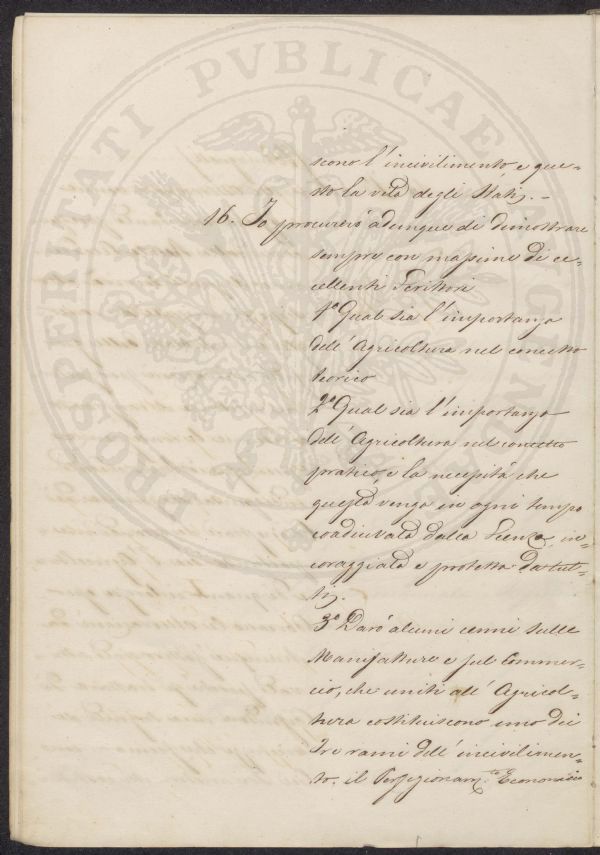 scono l'incivilimento, e que=
sto la vita degli Stati. –
16. Io procurerò adunque di dimostrare
sempre con massime di ec=
cellenti Scrittori
1º Qual sia l'importanza
dell'Agricoltura nel concetto
teorico
2º Qual sia l'importanza
dell'Agricoltura nel concetto
pratico, e la necessità che
questa venga in ogni tempo
coadiuvata dalla Scienza, in=
coraggiata e protetta da tut=
ti.
3º Darò alcuni cenni sulle
Manifatture e sul Commer=
cio, che uniti all'Agricol=
tura costituiscono uno dei
Tre rami dell'incivilimen=
to, il Perfezionam.to Economico
PROSPERITATI PVBLICAE